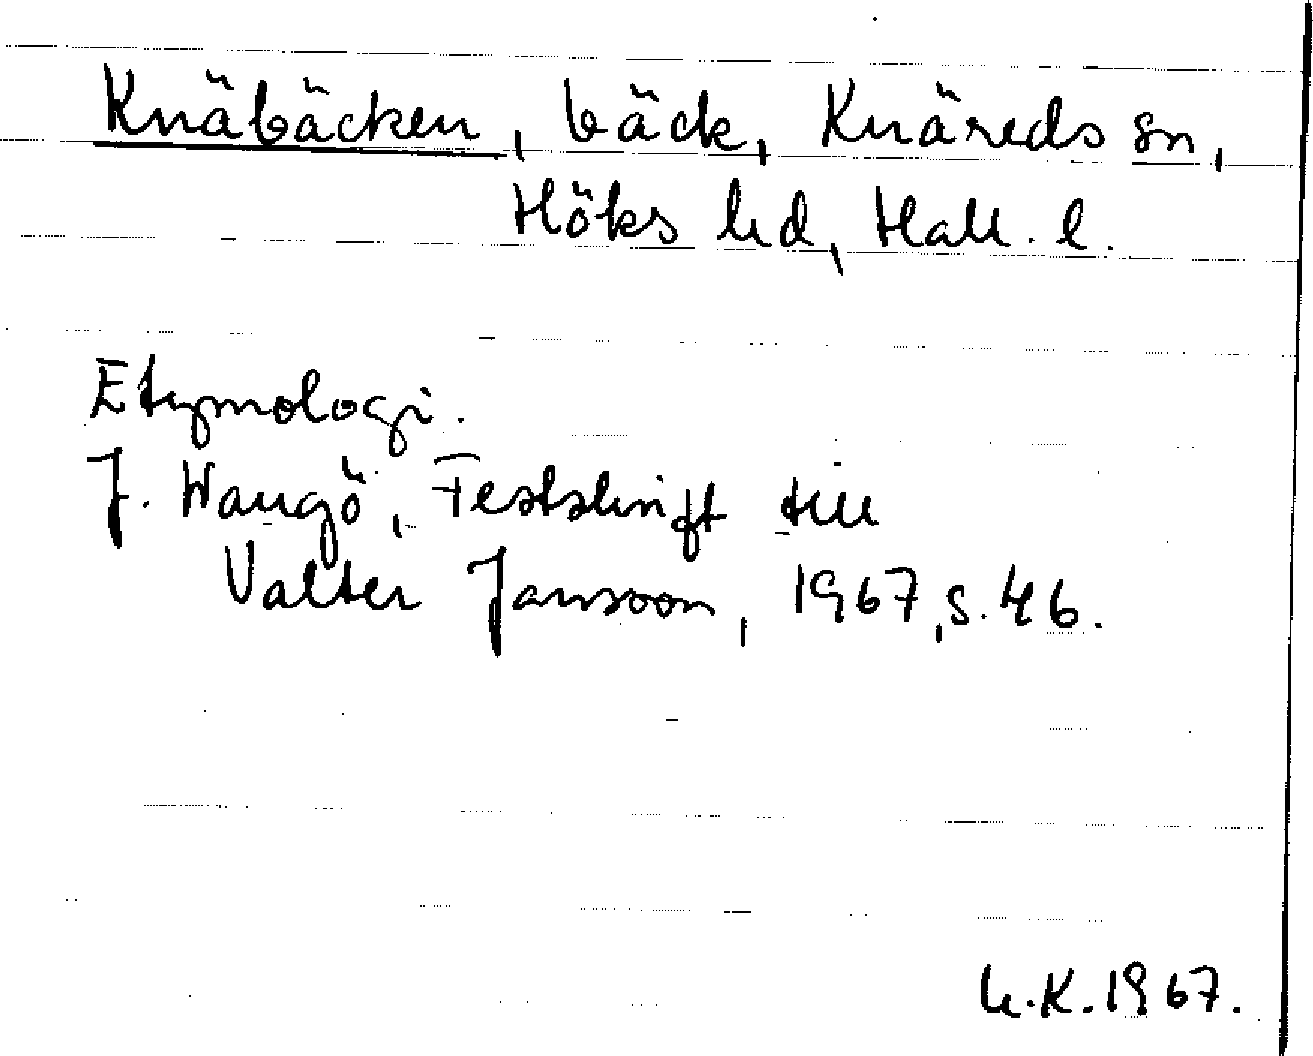 Knäbäcken, bäck, Knäreds sn,
Höks hd, Hall. l.
Etymologi.
J. Waugö, Festskrift till
Valter Jansson, 1967, s. 46.
h.K. 1967.